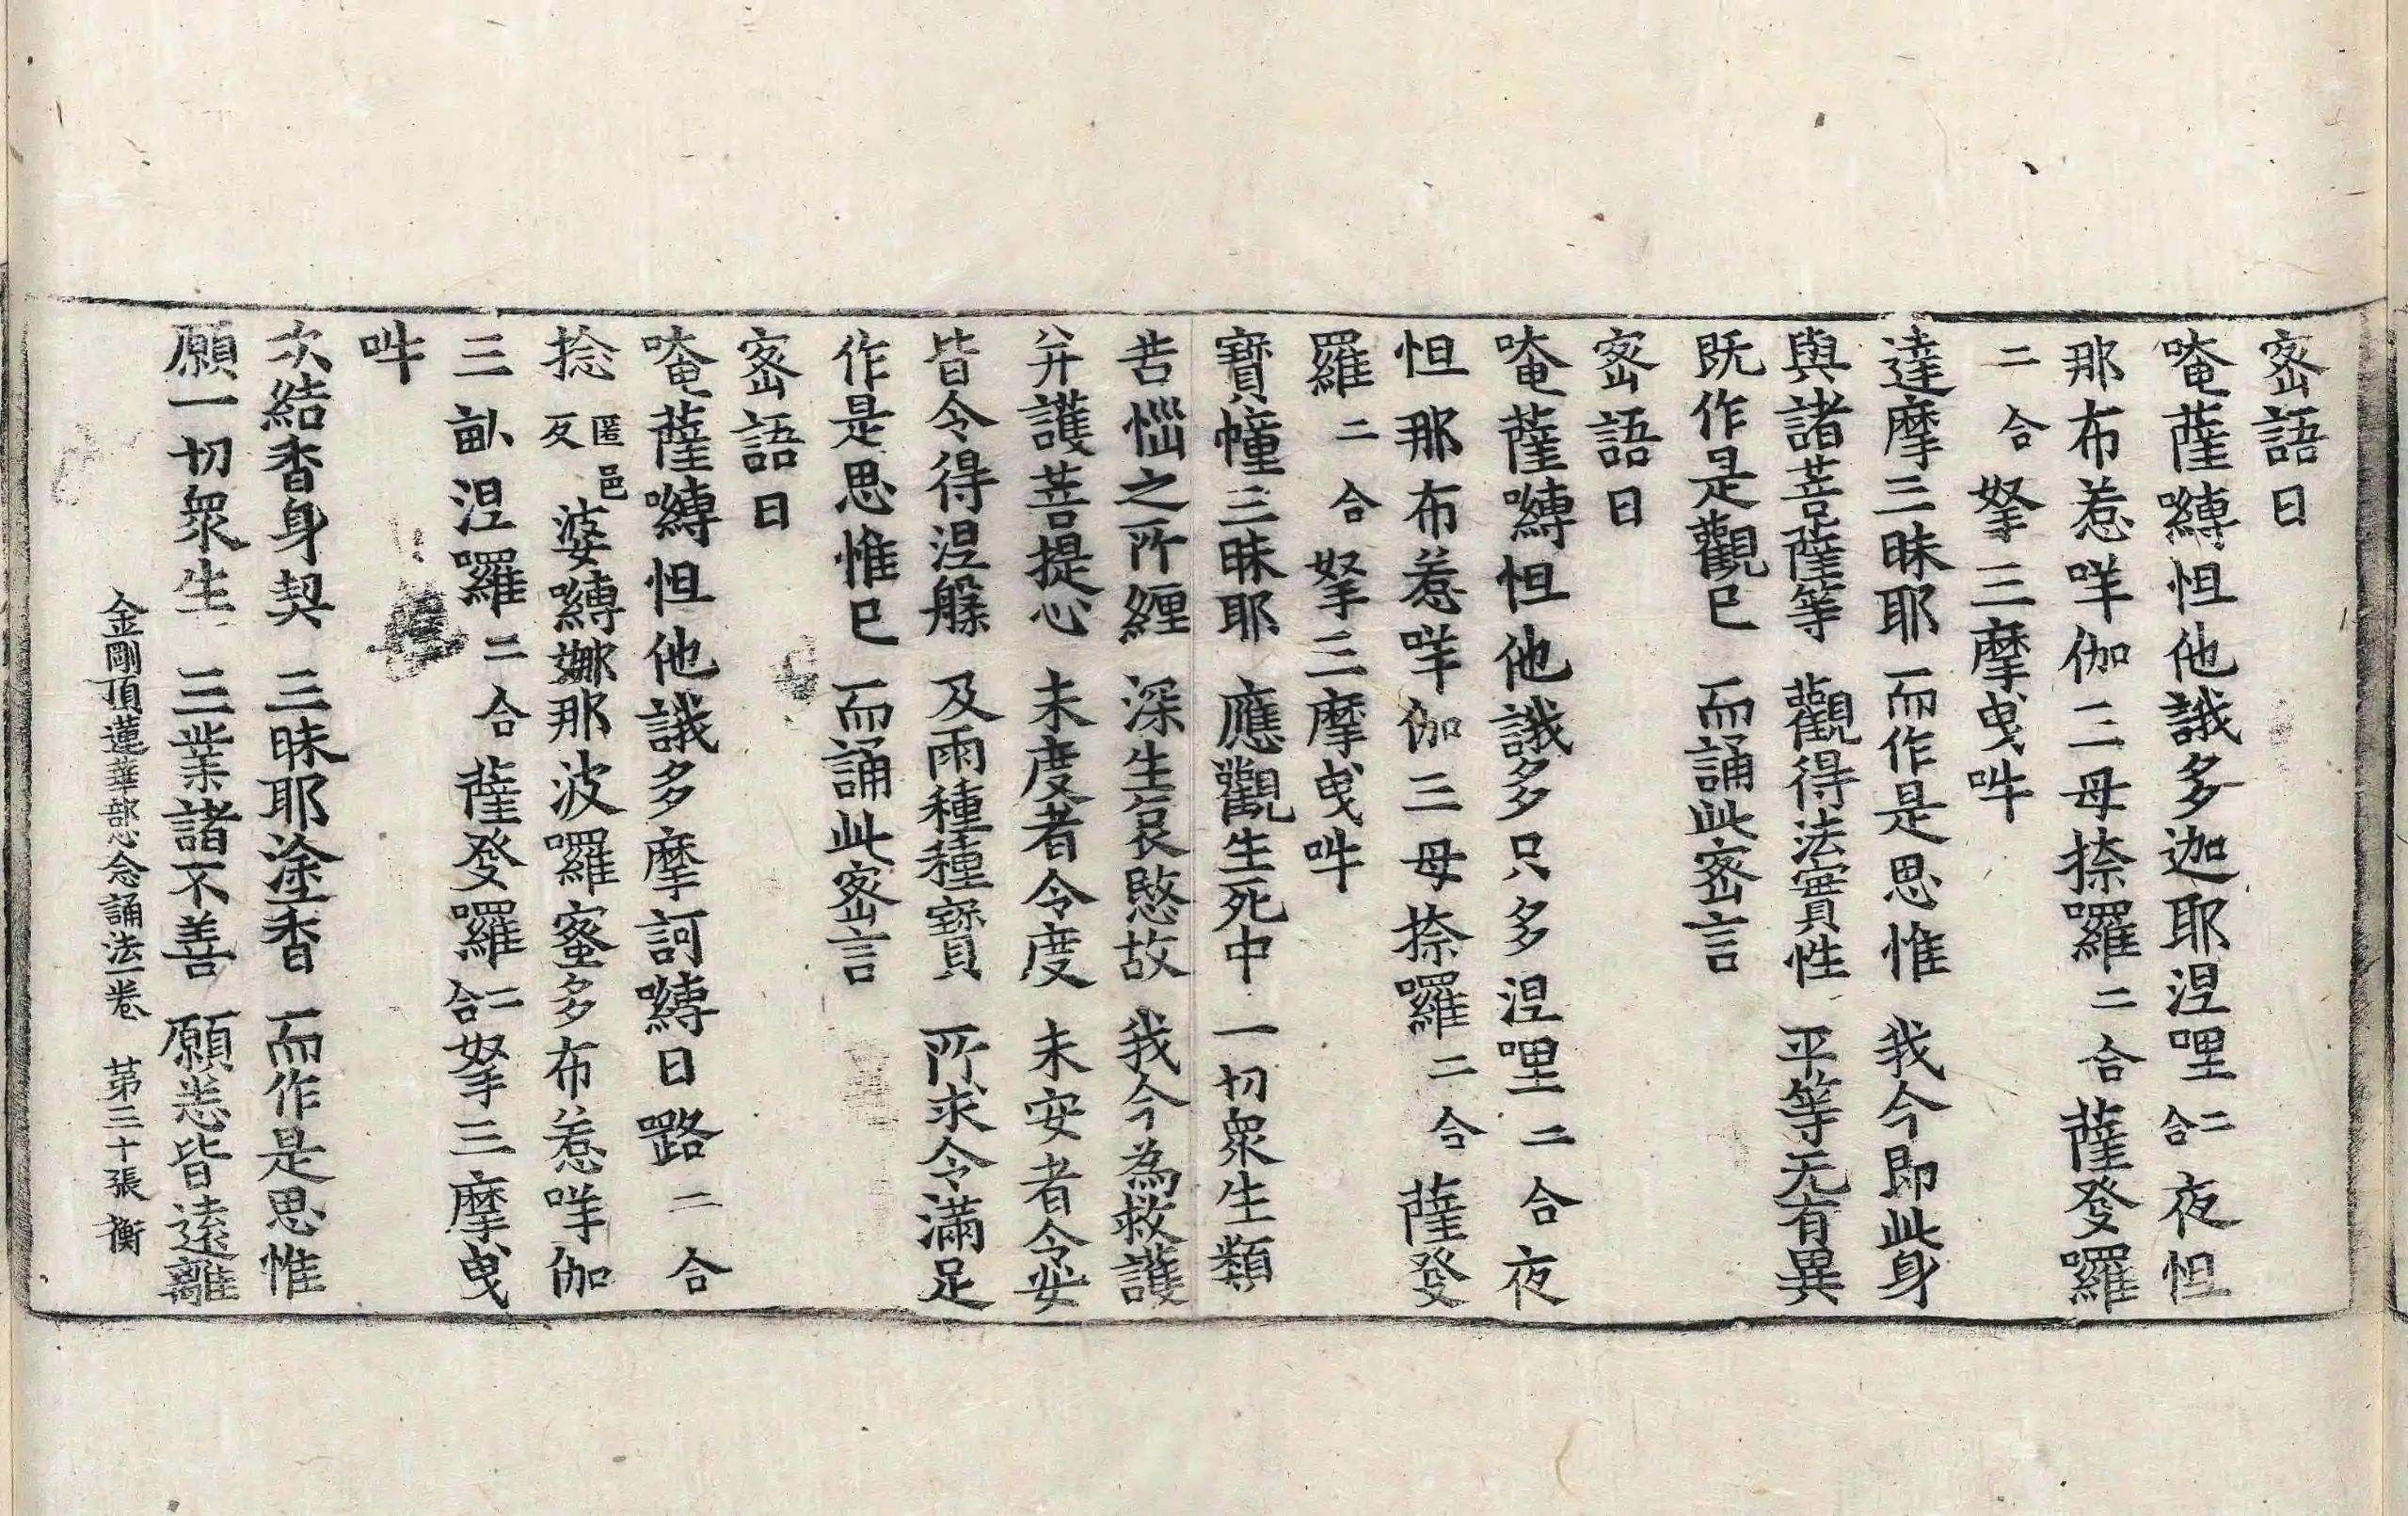 密語曰
唵薩嚩怛他誐多迦耶涅哩二合夜怛
那布惹咩伽三母捺囉二合薩發囉
二合拏三摩曳吽
達摩三昧耶　而作是思惟　我今即此身
與諸菩薩等　觀得法實性　平等无有異
既作是觀已　而誦此密言
密語曰
唵薩嚩怛他誐多只多涅哩二合夜
怛那布惹咩伽三母捺囉二合薩發
羅二合拏三摩曳吽
寶幢三昧耶　應觀生死中　一切衆生類
苦惱之所纏　深生哀愍故　我今為救護
并護菩提心　未度者令度　未安者令安
皆令得涅槃　及雨種種寶　所求令滿足
作是思惟已　而誦此密言
密語曰
唵薩嚩怛他誐多摩訶嚩日㘕二合
捻匿邑反婆嚩娜那波囉蜜多布惹咩伽
三畝涅囉二合薩發囉二合拏三摩曳
吽
次結香身契　三昧耶塗香　而作是思惟
願一切衆生　三業諸不善　願悉皆遠離
金剛頂蓮華部心念誦法一卷　苐三十張　衡